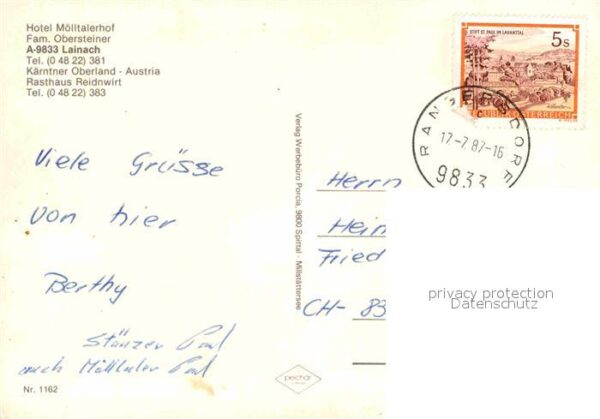 Hotel Mölltalerhof
Fam. Obersteiner
A-9833 Lainach
Tel. (0 48 22) 381
Kärntner Oberland - Austria
Rasthaus Reidnwirt
Tel. (0 48 22) 383
STIFT ST. PAUL IM LAVANTTAL
5s
REPUBLIK ÖSTERREICH
RANGERSDORF
17-7.87-16
9833
Viele Grüsse
von hier
Berthy
Stänzer Paul
auch Mölltaler Paul
Verlag Werbebüro Porcia, 9800 Spittal - Millstättersee
Herrn
Hein
Fried
CH- 83
privacy protection
Datenschutz
Nr. 1162